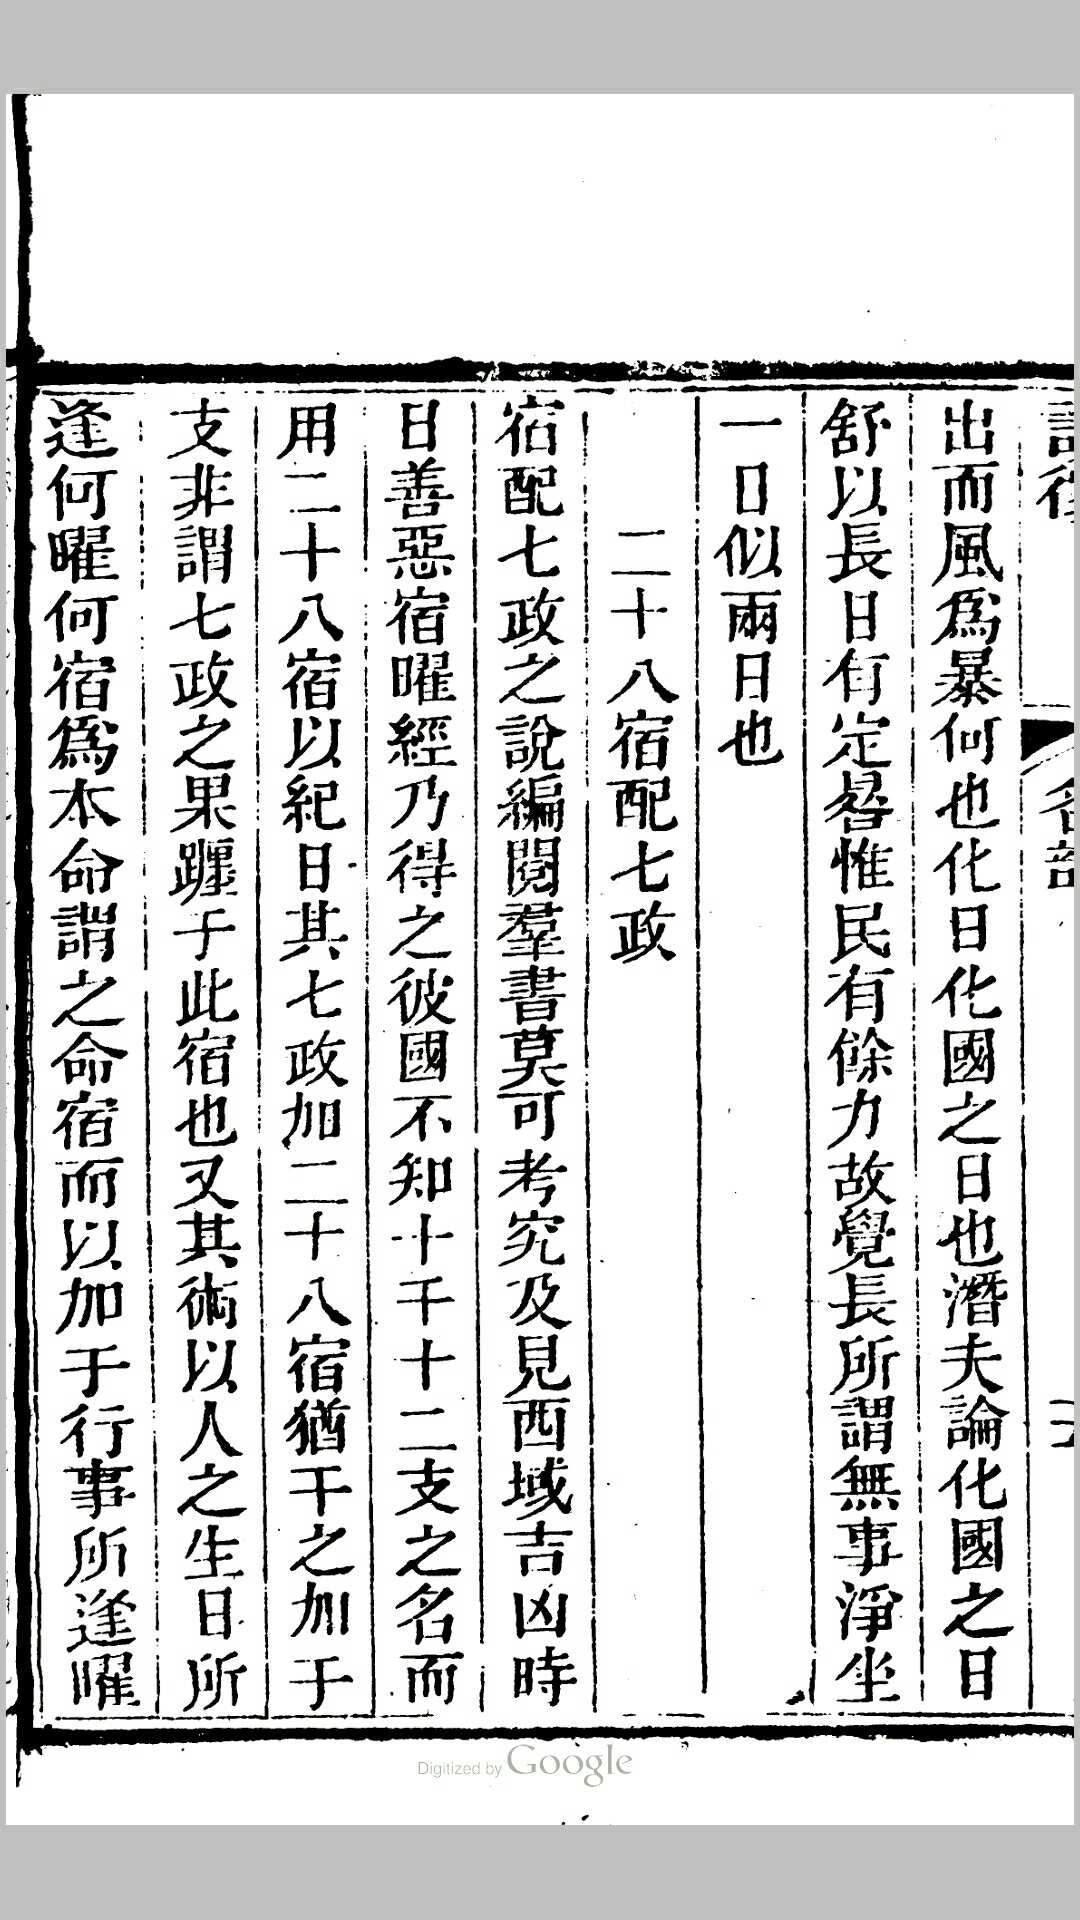 出而風爲暴何也化日化國之日也潛夫論化國之日
舒以長日有定晷惟民有餘力故覺長所謂無事淨坐
一日似兩日也
二十八宿配七政
宿配七政之說編閱羣書莫可考究及見西域吉凶時
日善惡宿曜經乃得之彼國不知十干十二支之名而
用二十八宿以紀日其七政加二十八宿猶干之加于
支非謂七政之果躔于此宿也又其術以人之生日所
逢何曜何宿爲本命謂之命宿而以加于行事所逢曜
Digitized by Google